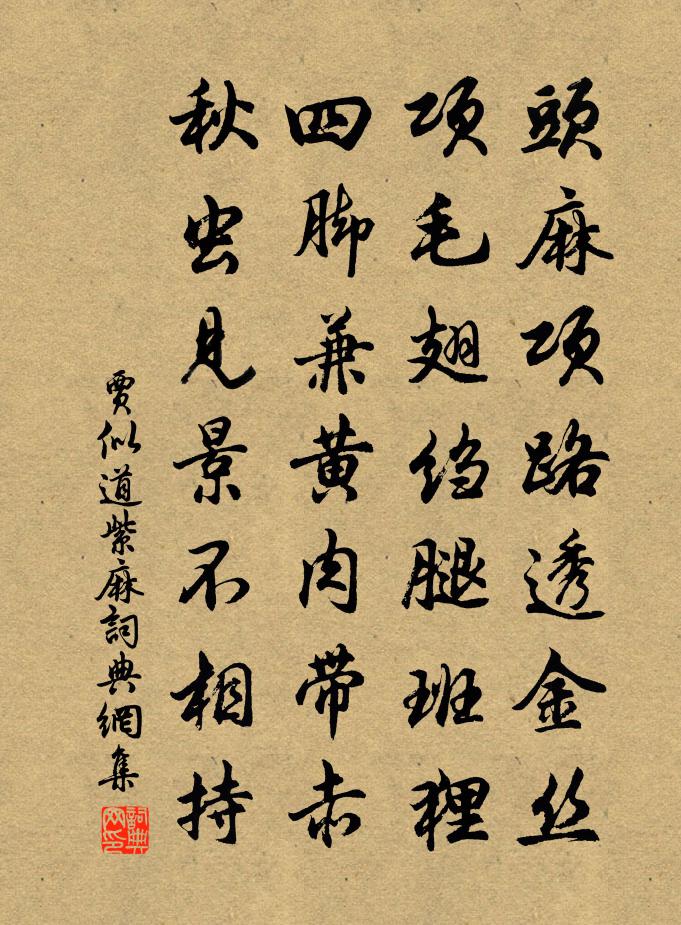 頭麻项路透金丝
项毛翅绉腿班狸
四脚兼黄肉带赤
秋虫見景不相持
賈似道紫麻詞典網集
詞典网印